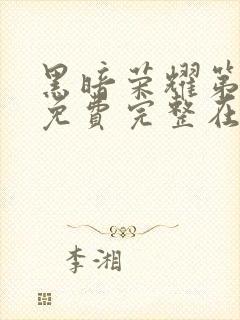 黑暗荣耀第
免费完整在
李湘